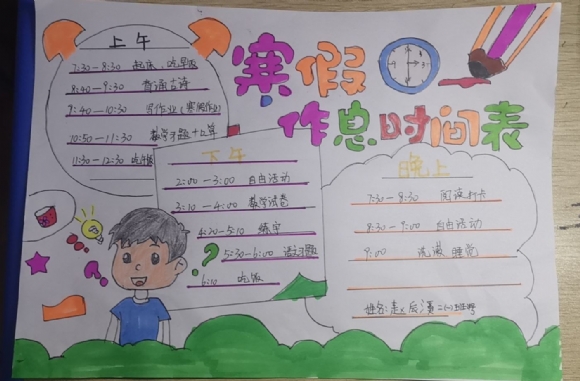 寒假
作息时间表
上午
7:30—8:30 起床、吃早饭
8:40—9:30 背诵古诗
9:40—10:30 写作业（寒假作业）
10:50—11:30 数学习题+口算
11:30—12:30 吃午饭
下午
2:00—3:00 自由活动
3:10—4:00 数学试卷
4:30—5:10 练字
5:30—6:00 练习题
6:10 吃饭
晚上
7:30—8:30 阅读打卡
8:30—9:00 自由活动
9:00 洗漱 睡觉
姓名: